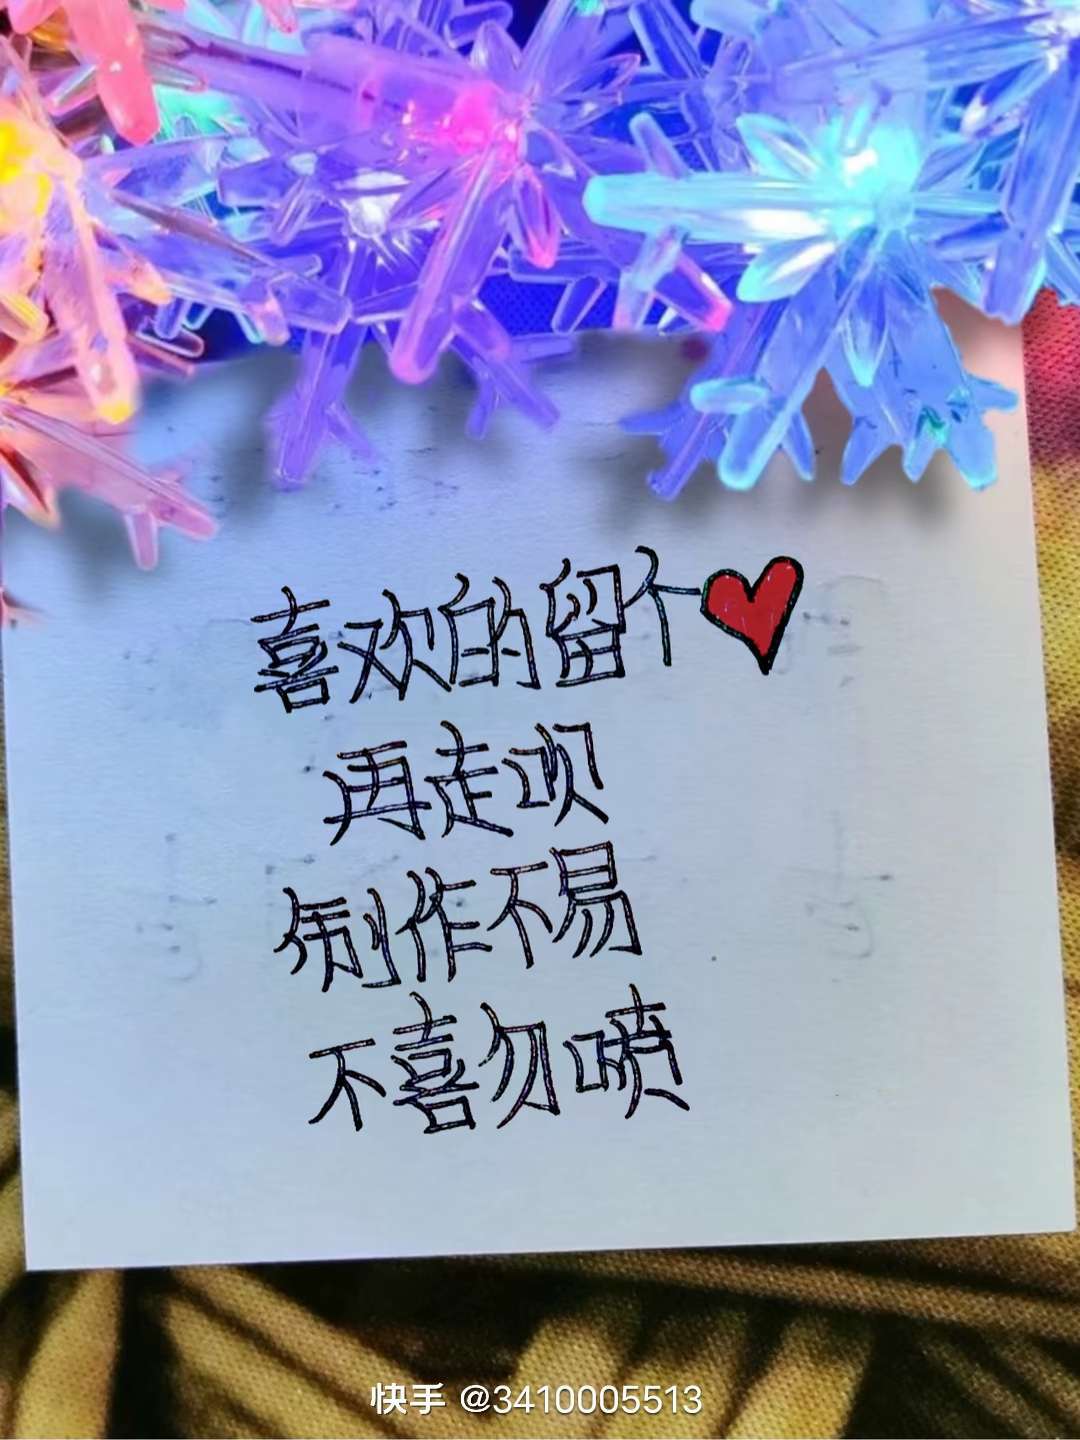 喜欢的留个❤
再走呗
制作不易
不喜勿喷
快手 @3410005513